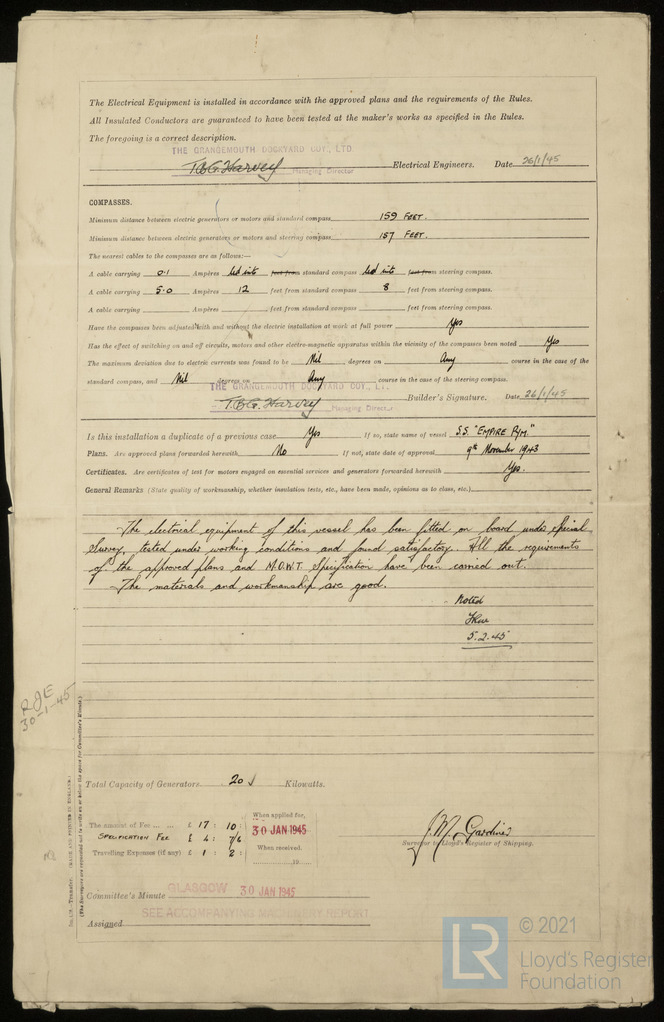 The Electrical Equipment is installed in accordance with the approved plans and the requirements of the Rules.
All Insulated Conductors are guaranteed to have been tested at the maker's works as specified in the Rules.
The foregoing is a correct description.
THE GRANGEMOUTH DOCKYARD COY., LTD.
T.B.G. Harvey Managing Director Electrical Engineers. Date 26/1/45
COMPASSES.
Minimum distance between electric generators or motors and standard compass 159 FEET.
Minimum distance between electric generators or motors and steering compass 157 FEET.
The nearest cables to the compasses are as follows:—
A cable carrying 0.1 Ampères led into feet from standard compass led into feet from steering compass.
A cable carrying 5.0 Ampères 12 feet from standard compass 8 feet from steering compass.
A cable carrying Ampères feet from standard compass feet from steering compass.
Have the compasses been adjusted with and without the electric installation at work at full power Yes
Has the effect of switching on and off circuits, motors and other electro-magnetic apparatus within the vicinity of the compasses been noted Yes
The maximum deviation due to electric currents was found to be Nil degrees on Any course in the case of the
standard compass, and Nil degrees on Any course in the case of the steering compass.
THE GRANGEMOUTH DOCKYARD COY., LT
T.B.G. Harvey Managing Director Builder's Signature. Date 26/1/45
Is this installation a duplicate of a previous case Yes If so, state name of vessel S.S. "EMPIRE PYM."
Plans. Are approved plans forwarded herewith No If not, state date of approval 9th November 1943
Certificates. Are certificates of test for motors engaged on essential services and generators forwarded herewith Yes.
General Remarks (State quality of workmanship, whether insulation tests, etc., have been made, opinions as to class, etc.)
The electrical equipment of this vessel has been fitted on board under special
Survey, tested under working conditions and found satisfactory. All the requirements
of the approved plans and M.O.W.T. Specification have been carried out.
The materials and workmanship are good.
Noted
5.2.45
RJE
30-1-45
Total Capacity of Generators 20 Kilowatts.
The amount of Fee £ 17 : 10 :
When applied for,
30 JAN 1945
SPECIFICATION FEE £ 4 : 7/6
Travelling Expenses (if any) £ 1 : 2 :
When received,
19
J.M. Gardner
Surveyor to Lloyd's Register of Shipping.
Committee's Minute GLASGOW 30 JAN 1945
SEE ACCOMPANYING MACHINERY REPORT
Assigned
(The Surveyors are requested not to write on or below the space for Committee's Minute.)
LR
© 2021
Lloyd's Register
Foundation